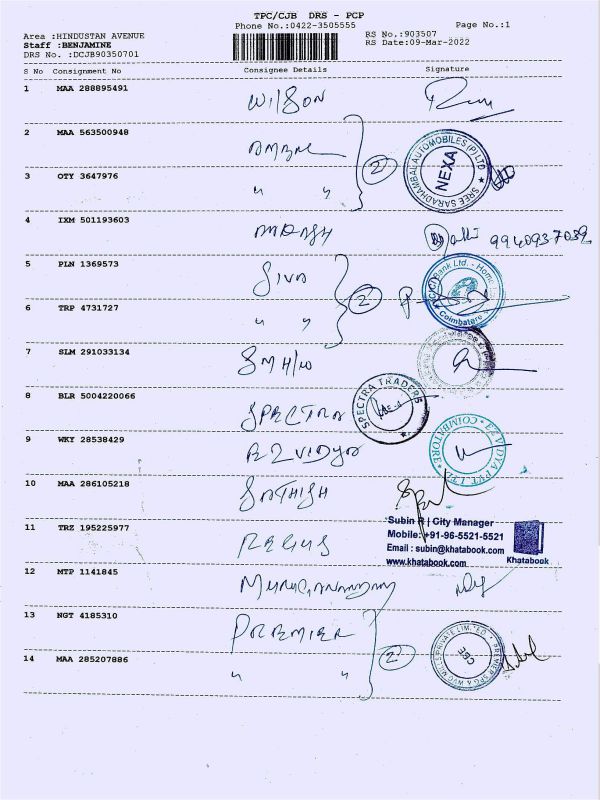 TPC/CJB DRS - PCP
Phone No.:0422-3505555
Page No.:1
Area :HINDUSTAN AVENUE
RS No.:903507
Staff :BENJAMINE
RS Date:09-Mar-2022
DRS No. :DCJB90350701
S No Consignment No Consignee Details Signature
1 MAA 288895491 WILSON
2 MAA 563500948
2
SREE SARADHAMBAL AUTOMOBILES (P) LTD
NEXA
3 OTY 3647976 " "
4 IXM 501193603 9940937039
5 PLN 1369573 SIVA
2
Bank Ltd. - Home
Coimbatore
6 TRP 4731727 " "
7 SLM 291033134
8 BLR 5004220066 SPECTRA
SPECTRA TRADERS
9 WKY 28538429 EZ VIDYA
EZ VIDYA PVT LTD
COIMBATORE
10 MAA 286105218 SATHISH
Subin R | City Manager
Mobile: +91-96-5521-5521
Email : subin@khatabook.com
www.khatabook.com
Khatabook
11 TRZ 195225977 REGUS
12 MTP 1141845
13 NGT 4185310 PREMIER
2
PREMIER SPG & WVG MILLS PRIVATE LIMITED
CBE
14 MAA 285207886 " "